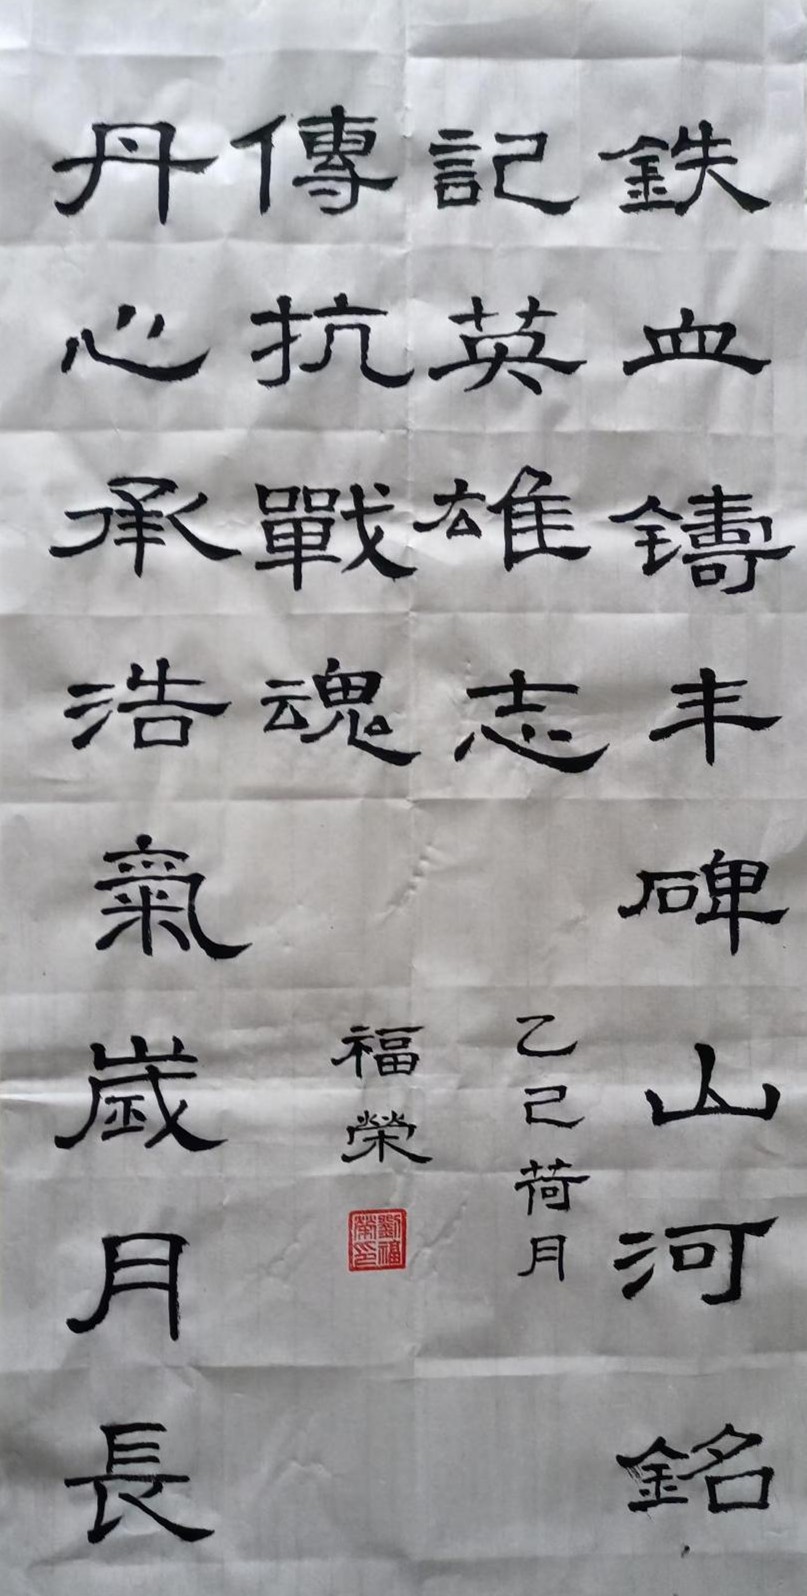 鉄血鑄丰碑山河銘
記英雄志
乙巳荷月
丹心承浩氣歲月長
傳抗戰魂
福榮
劉福榮印